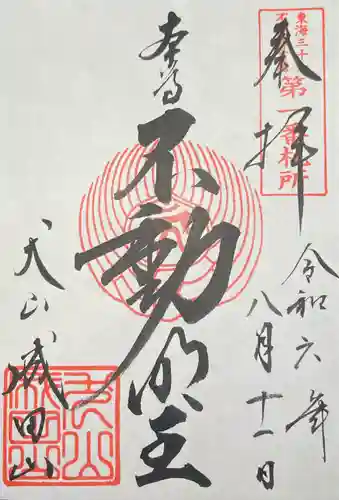 奉拝
東海三十
第一番札所
令和六年
八月十一日
本尊
不動明王
犬山
成田山